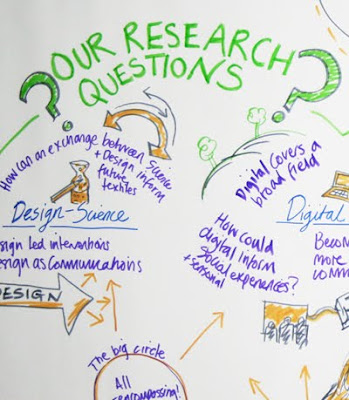 OUR RESEARCH
QUESTIONS
How can an exchange between Science
+ Design inform
future
textiles
Design-Science
sign led interventions
esign as communications
DESIGN
Digital covers a
broad field
Digital
How could
digital inform
social experiences?
+ sensorial
Becom
more
commu
The big circle
All
encompassing!